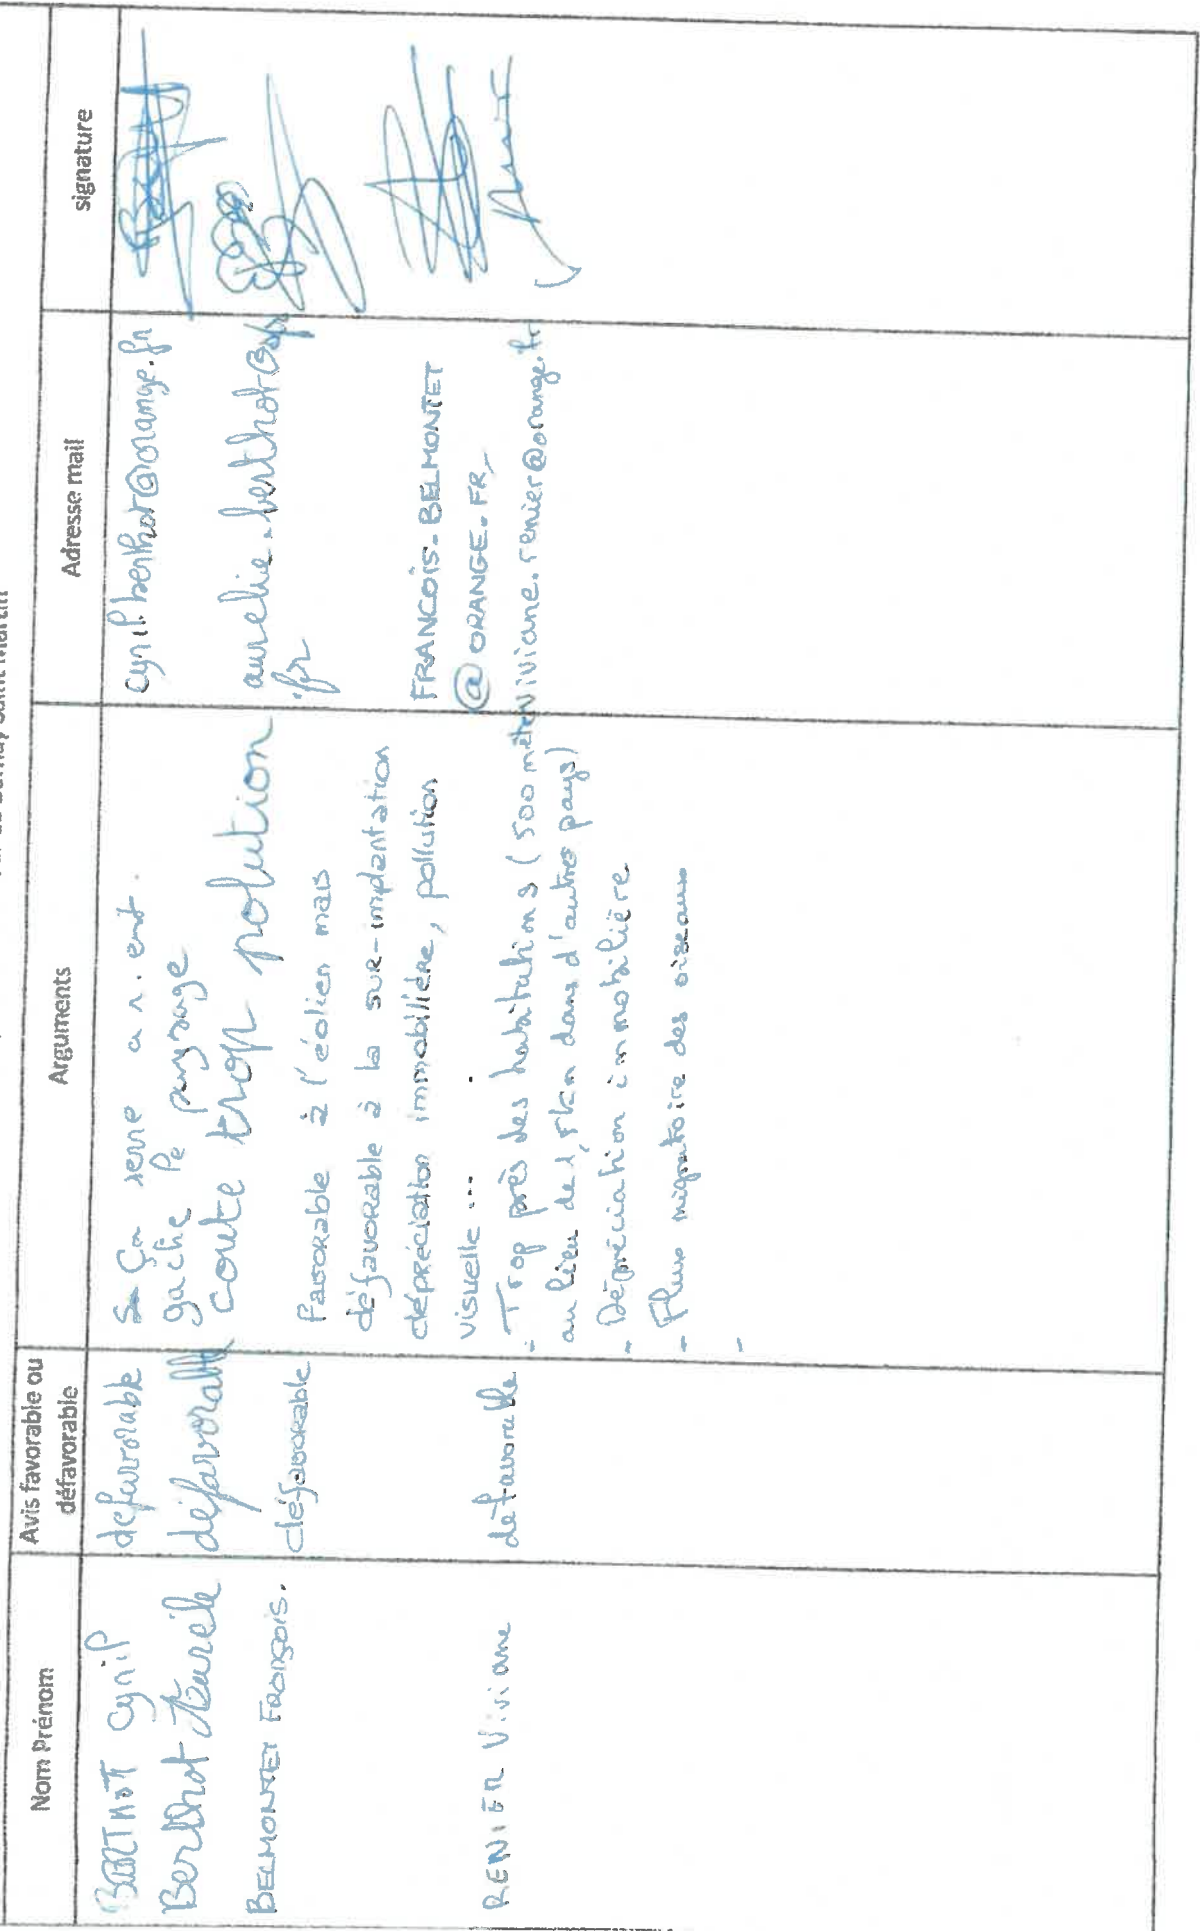 Nom Prénom
Avis favorable ou
défavorable
Arguments
Adresse mail
signature
BERTHOT Cyril
défavorable
Ça serve a rient.
gache le paysage
cyril.berthot@orange.fr
Berthot Aurélie
défavorable
coute trop polution
aurelie.berthot@sfr
.fr
BELMONTET François.
défavorable
Favorable à l'éolien mais
défavorable à la sur-implantation
dépréciation immobilière, pollution
visuelle ...
FRANCOIS.BELMONTET
@ORANGE.FR
RENIER Viviane
défavorable
- Trop près des habitations (500 mètres
au lieu de 1,5km dans d'autres pays)
- Dépréciation immobilière
- Flux migratoire des oiseaux
-
viviane.renier@orange.fr